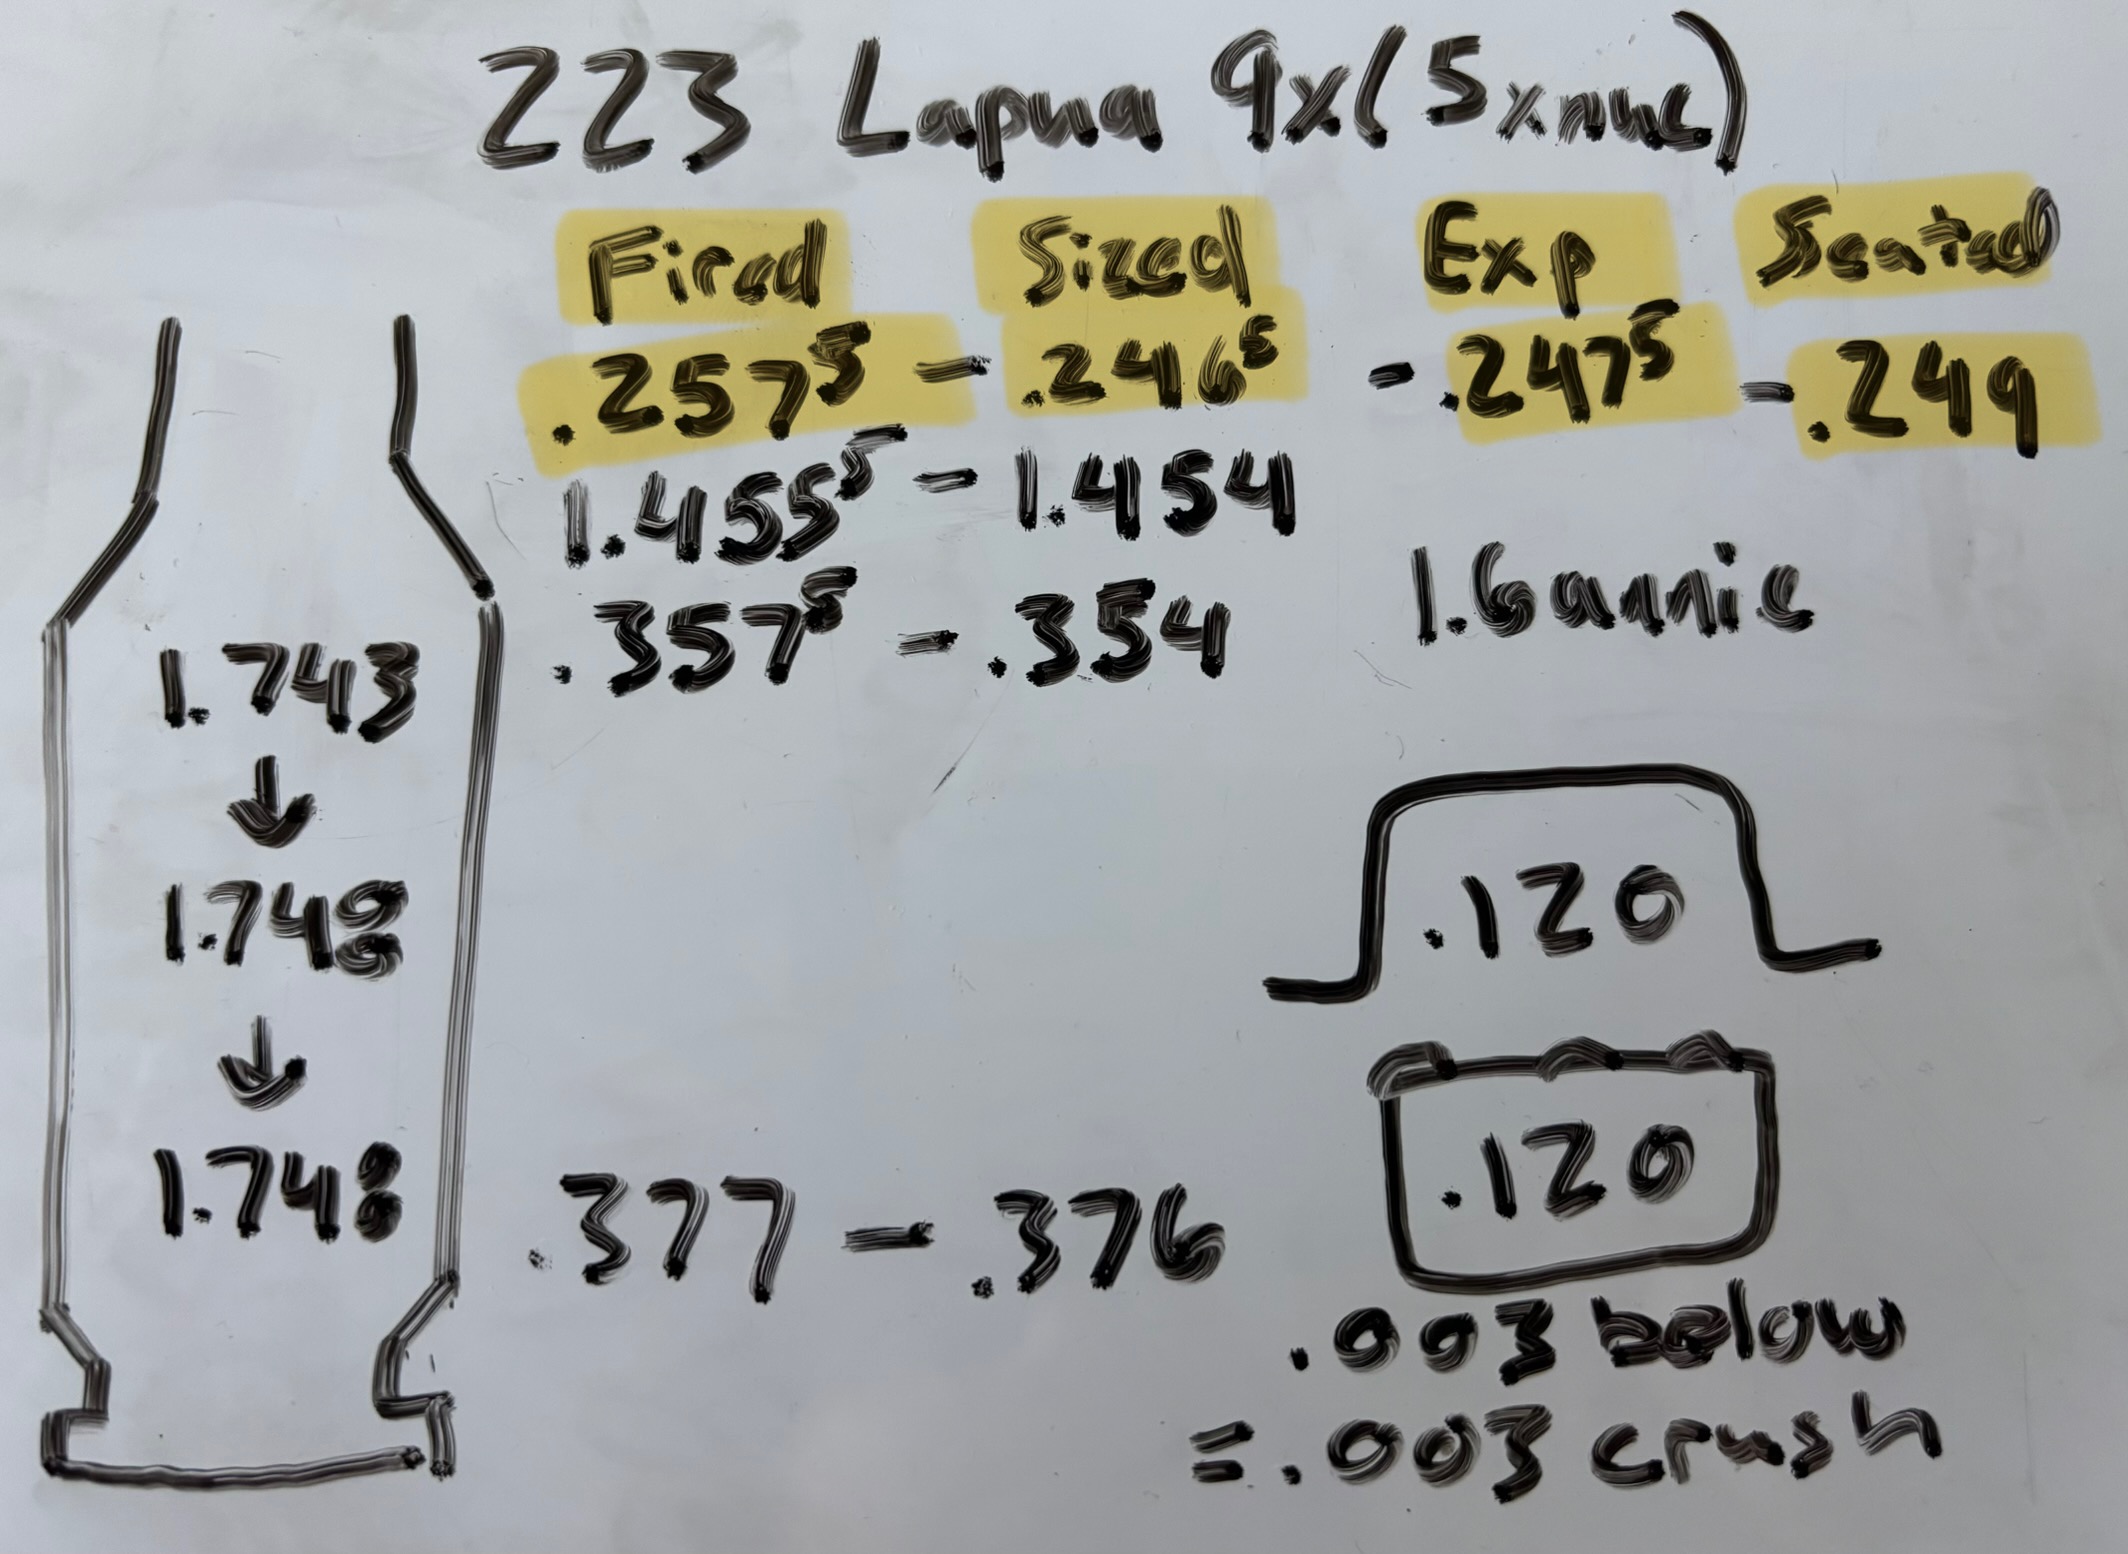 223 Lapua 9x(5xnuc)
Fired Sized Exp Seated
.257⁵ - .246⁵ - .247⁵ - .249
1.455⁵ - 1.454
.357⁵ - .354
1.6annie
1.743
↓
1.748
↓
1.748
.377 - .376
.120
.120
.003 below
=.003 crush